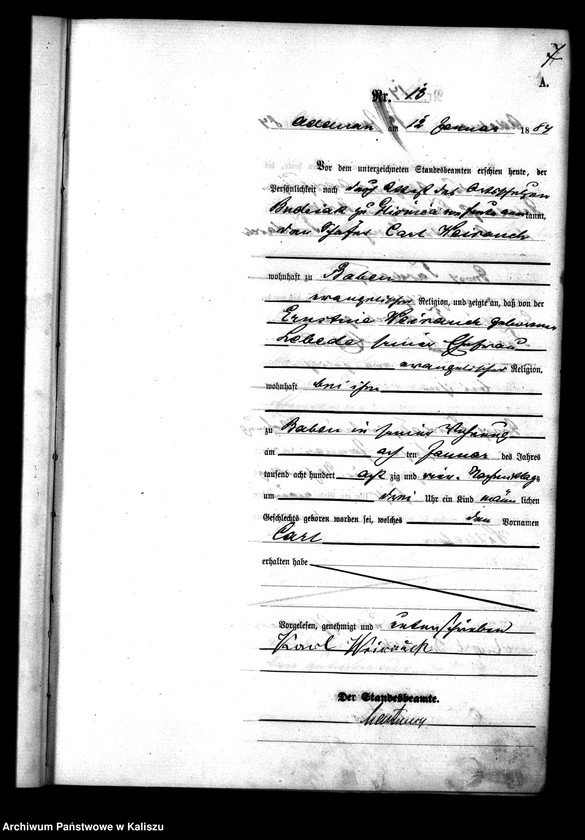 7
A.
Nr. 13
am 12 Januar 1884
Vor dem unterzeichneten Standesbeamten erschien heute, der
Persönlichkeit nach durch Attest des Ortsschulzen
zu kannt,
den Schäfer Carl Weirauch
wohnhaft zu Baben
evangelischer Religion, und zeigte an, daß von der
Ernstine Weirauch geborenen
Lebede seiner Ehefrau
evangelischer Religion,
wohnhaft bei ihm
zu Baben in seiner Wohnung
am ten Januar des Jahres
tausend acht hundert achtzig und vier Nachmittags
um drei Uhr ein Kind männlichen
Geschlechts geboren worden sei, welches den Vornamen
Carl
erhalten habe
Vorgelesen, genehmigt und unterschrieben
Karl Weirauch
Der Standesbeamte.
Archiwum Państwowe w Kaliszu